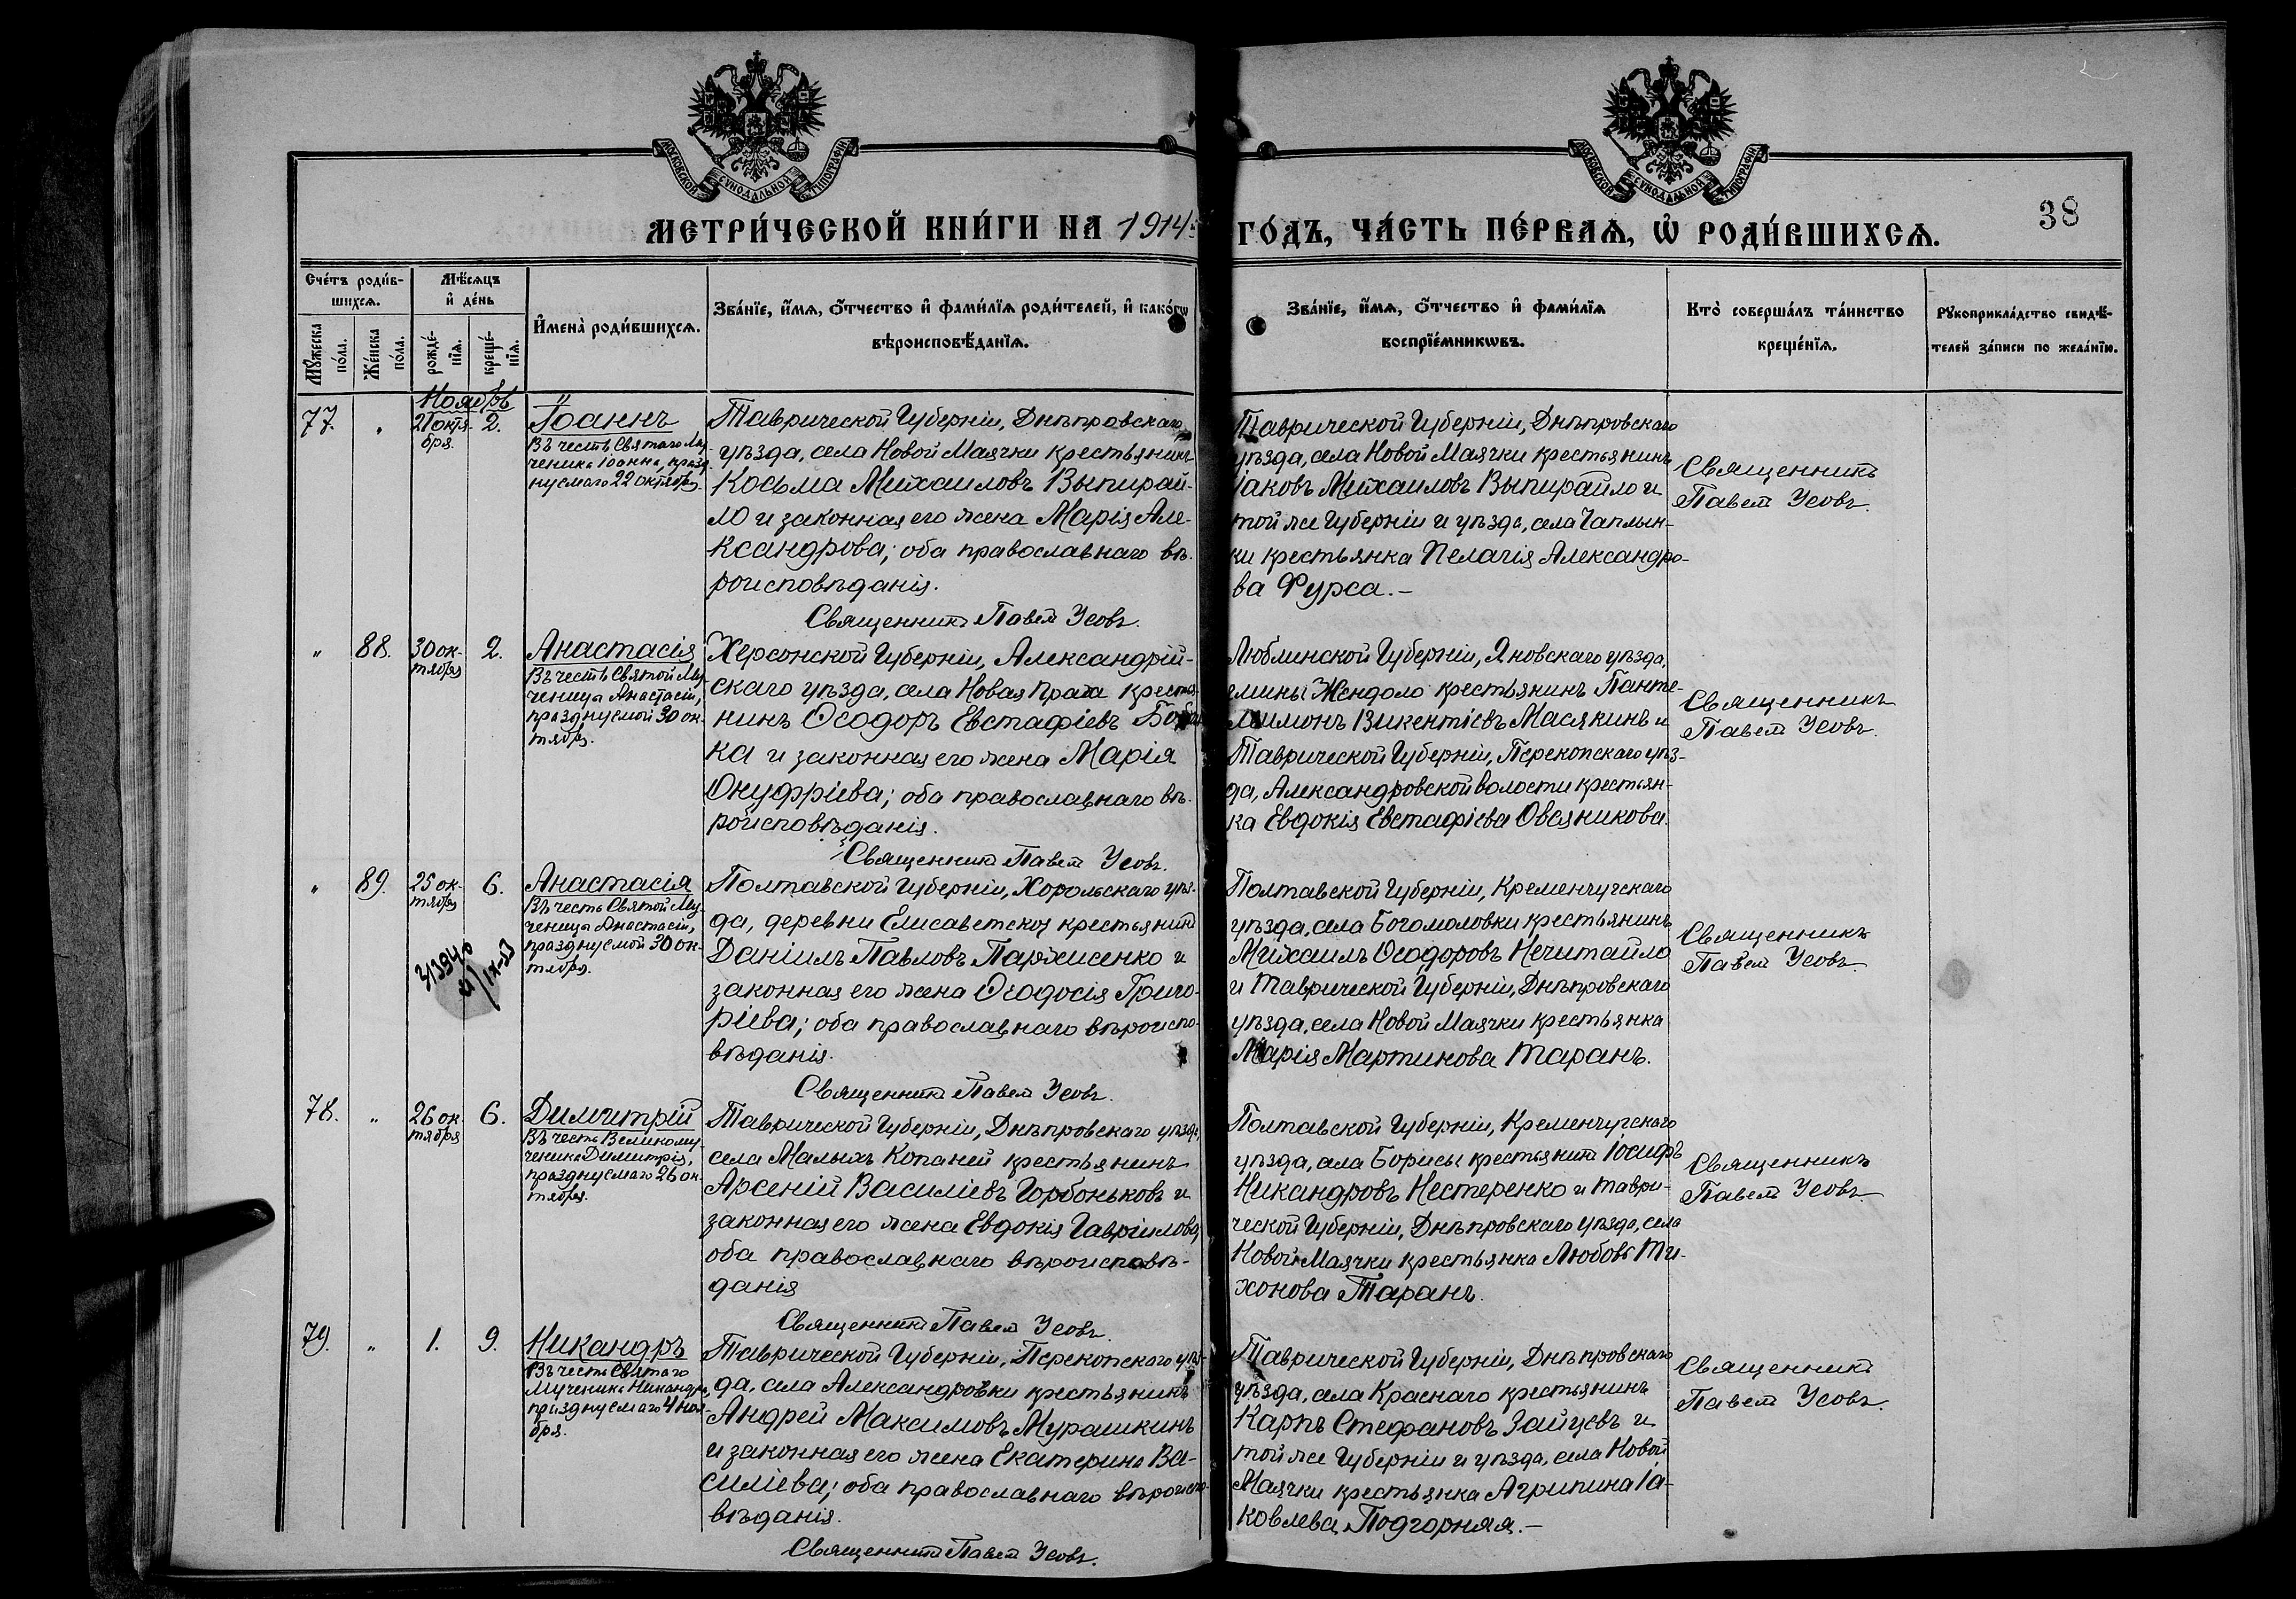 МОСКОВСКОЙ СѴНОДАЛЬНОЙ ТИПОГРАФІИ
МОСКОВСКОЙ СѴНОДАЛЬНОЙ ТИПОГРАФІИ
МЕТРИ́ЧЕСКОЙ КНИ́ГИ НА 1914 ГО́ДЪ, ЧА́СТЬ ПЕ́РВАѦ, Ѡ҆ РОДИ́ВШИХСѦ.
38
Сче́тъ роди́в-
шихсѧ.
Мꙋ́жеска по́ла.
Же́нска по́ла.
Мѣ́сѧцъ
и҆ де́нь
рожде́-
нїѧ.
креще́-
нїѧ.
И҆мена̀ роди́вшихсѧ.
Зва́нїе, и҆́мѧ, ѻ҆́тчество и҆ фами́лїѧ роди́телей, и҆ како́гѡ
вѣроисповѣ́данїѧ.
Зва́нїе, и҆́мѧ, ѻ҆́тчество и҆ фами́лїѧ
воспрїе́мникѡвъ.
Кто̀ соверша́лъ та́инство
креще́нїѧ.
Рꙋкоприкла́дство свидѣ́-
телей за́писи по жела́нїю.
Ноябрь
77.
"
21 октя-
бря.
2.
Іоаннъ
Въ честь Святаго Му-
ченика Іоанна, празд-
нуемаго 22 октября.
Таврической Губерніи, Днѣпровскаго
уѣзда, села Новой Маячки крестьянинъ
Косьма Михаиловъ Выпирай-
ло и законная его жена Марія Але-
ксандрова; оба православнаго вѣ-
роисповѣданія.
Священникъ Павелъ Усовъ.
Таврической Губерніи, Днѣпровскаго
уѣзда, села Новой Маячки крестьянинъ
Іаковъ Михаиловъ Выпирайло и
той же Губерніи и уѣзда, села Чаплын-
ки крестьянка Пелагія Александро-
ва Фурса.-
Священникъ
Павелъ Усовъ.
"
88.
30 ок-
тября
2.
Анастасія
Въ честь Святой Му-
ченицы Анастасіи,
празднуемой 30 ок-
тября.
Херсонской Губерніи, Александрій-
скаго уѣзда, села Новая Прага крестья-
нинъ Ѳеодоръ Евстафіевъ
ка и законная его жена Марія
Онуфріева; оба православнаго вѣ-
роисповѣданія.
Священникъ Павелъ Усовъ.
Люблинской Губерніи, Яновскаго уѣзда,
гмины крестьянинъ Панте-
леимонъ Викентіевъ Масякинъ и
Таврической Губерніи, Перекопскаго уѣз-
да, Александровской волости крестьян-
ка Евдокія Евстафіева Овсяникова.
Священникъ
Павелъ Усовъ.
"
89.
25 ок-
тября
6.
Анастасія
Въ честь Святой Му-
ченицы Анастасіи,
празднуемой 30 ок-
тября.
Полтавской Губерніи, Хорольскаго уѣз-
да, деревни Елисаветской крестьянинъ
Даніилъ Павловъ Пархисенко и
законная его жена Ѳеодосія Григо-
ріева; оба православнаго вѣроиспо-
вѣданія.
Священникъ Павелъ Усовъ.
Полтавской Губерніи, Кременчугскаго
уѣзда, села Богомоловки крестьянинъ
Михаилъ Ѳеодоровъ Нечитайло
и Таврической Губерніи, Днѣпровскаго
уѣзда, села Новой Маячки крестьянка
Марія Мартинова Таранъ.
Священникъ
Павелъ Усовъ.
78.
"
26 ок-
тября
6.
Димитрій
Въ честь Великому-
ченика Димитрія,
празднуемаго 26 ок-
тября.
Таврической Губерніи, Днѣпровскаго уѣзда,
села Малыхъ Копаней крестьянинъ
Арсеній Василіевъ Горбоньковъ и
законная его жена Евдокія Гавріилова,
оба православнаго вѣроисповѣ-
данія
Священникъ Павелъ Усовъ.
Полтавской Губерніи, Кременчугскаго
уѣзда, села Борисы крестьянинъ Іосифъ
Никандровъ Нестеренко и Таври-
ческой Губерніи, Днѣпровскаго уѣзда, села
Новой Маячки крестьянка Любовь Ти-
хонова Таранъ.
Священникъ
Павелъ Усовъ
79.
"
1.
9.
Никандръ
Въ честь Святаго
Мученика Никандра,
празднуемаго 4 ноя-
бря.
Таврической Губерніи, Перекопскаго уѣз-
да, села Александровки крестьянинъ
Андрей Максимовъ Мурашкинъ
и законная его жена Екатерина Ва-
силіева; оба православнаго вѣроиспо-
вѣданія.
Священникъ Павелъ Усовъ.
Таврической Губерніи, Днѣпровскаго
уѣзда, села Краснаго крестьянинъ
Карпъ Стефановъ Зайцевъ и
той же Губерніи и уѣзда, села Новой
Маячки крестьянка Агрипина Іа-
ковлева Подгорняя.-
Священникъ
Павелъ Усовъ.